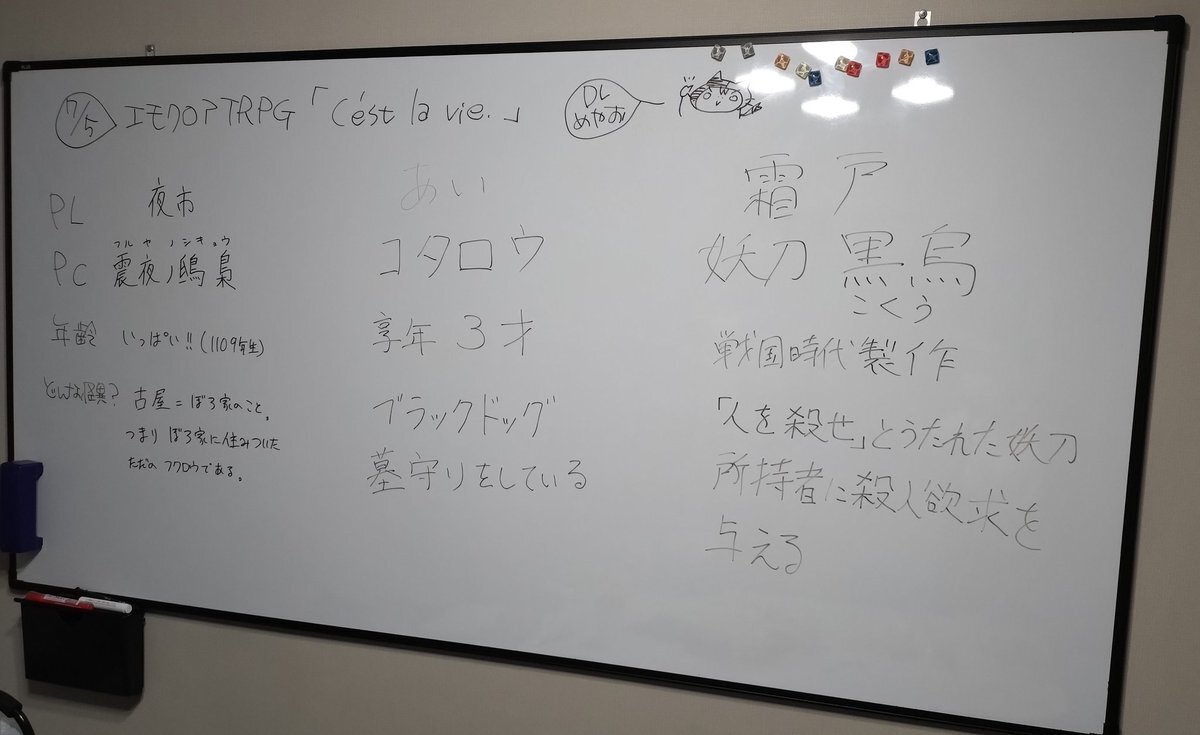 7/5 エモクロアTRPG「C'est la vie.」 DL めがね
PL 夜市 あい 霜戸
フルヤノシキョウ
PC 震夜ノ鴟梟 コタロウ 妖刀 黒烏
こくう
年齢 いっぱい!!(1109年生) 享年 3才 戦国時代製作
どんな怪異? 古屋=ぼろ家のこと。 ブラックドッグ 「人を殺せ」とうたれた妖刀
つまり ぼろ家に住みついた 墓守りをしている 所持者に殺人欲求を
ただの フクロウである。 与える